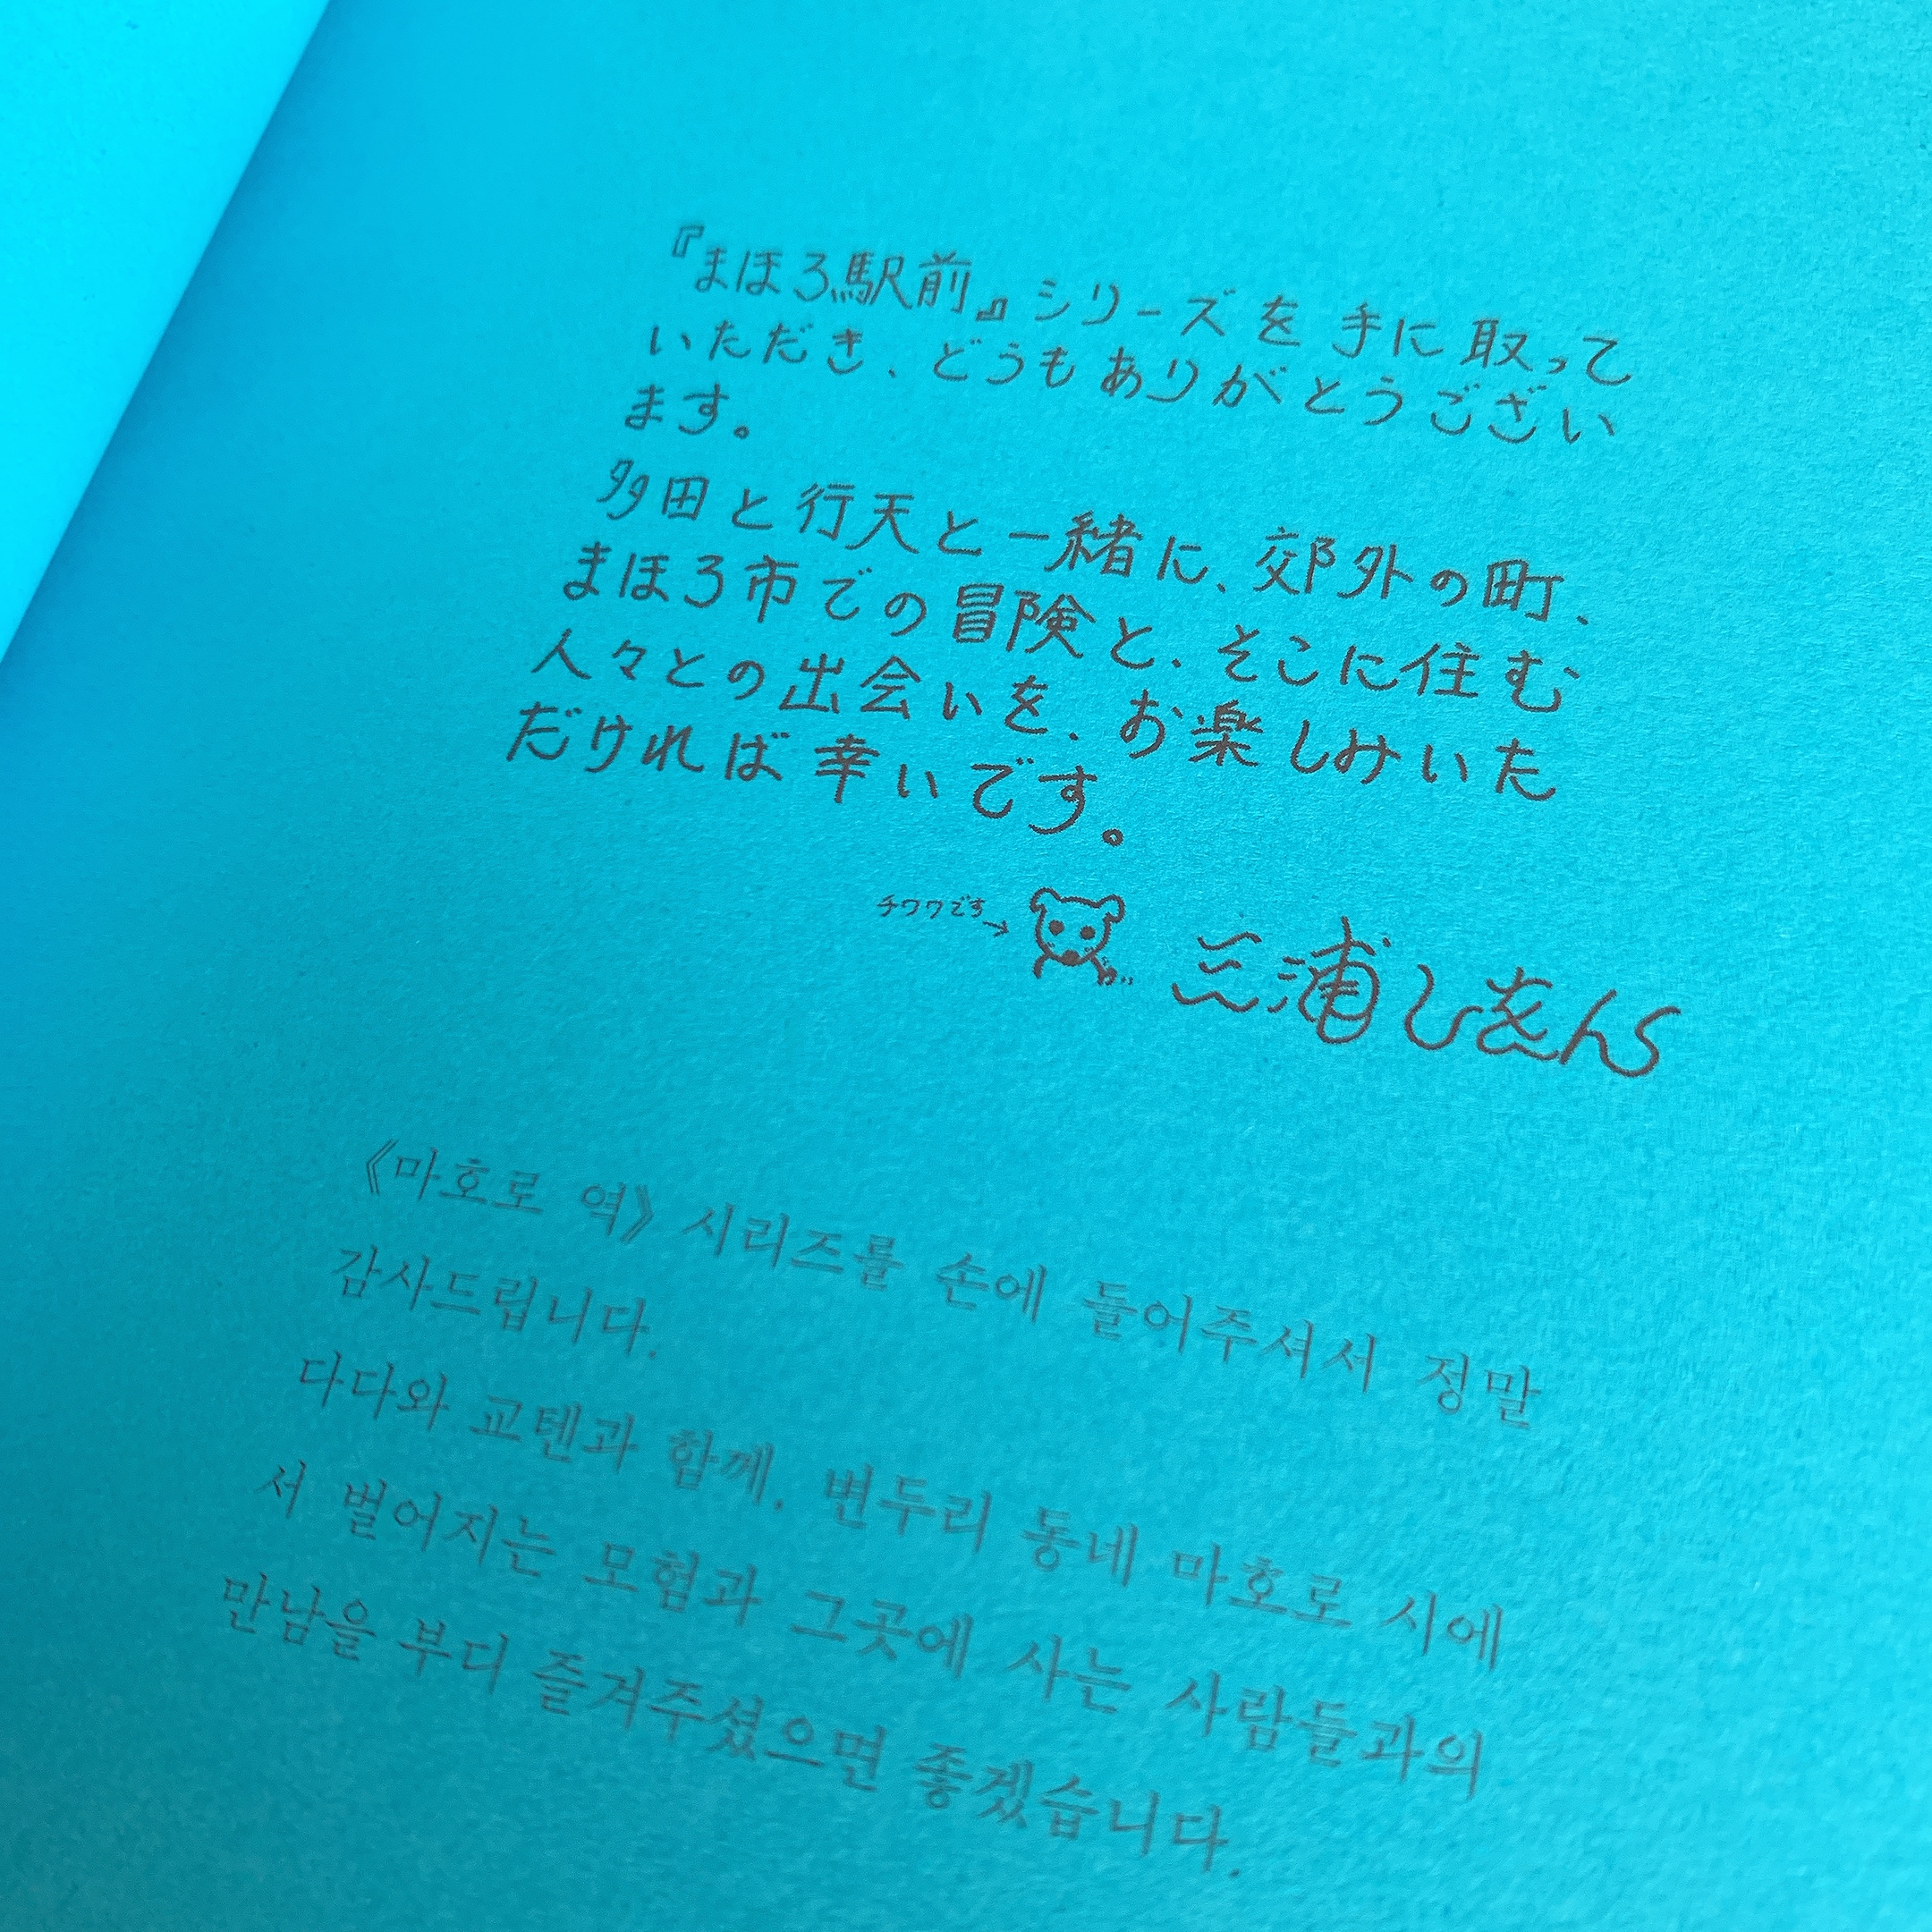 『まほろ駅前』シリーズを手に取って
いただき、どうもありがとうござい
ます。
多田と行天と一緒に、郊外の町、
まほろ市での冒険と、そこに住む
人々との出会いを、お楽しみいた
だければ幸いです。
チワワです→
三浦しをん
《마호로 역》 시리즈를 손에 들어주셔서 정말
감사드립니다.
다다와 교텐과 함께, 변두리 동네 마호로 시에
서 벌어지는 모험과 그곳에 사는 사람들과의
만남을 부디 즐겨주셨으면 좋겠습니다.